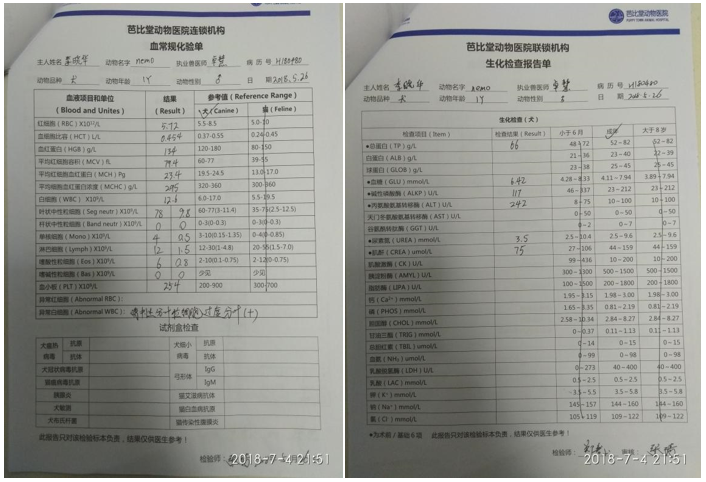 芭比堂动物医院连锁机构
血常规化验单
主人姓名 动物名字 nemo 执业兽医师 病历号 H180480
动物品种 犬 动物年龄 1Y 动物性别 日期 2018.5.26
血液项目和单位 (Blood and Unites) 结果 (Result) 参考值 (Reference Range)
犬 (Canine) 猫 (Feline)
红细胞 (RBC) X10¹²/L 5.72 5.5-8.5 5.0-10
血细胞比容 (HCT) L/L 0.454 0.37-0.55 0.24-0.45
血红蛋白 (HGB) g/L 134 120-180 80-150
平均红细胞容积 (MCV) fL 79.4 60-77 39-55
平均红细胞血红蛋白 (MCH) Pg 23.4 19.5-24.5 13.0-17.0
平均细胞血红蛋白浓度 (MCHC) g/L 295 320-360 300-360
白细胞 (WBC) X10⁹/L 12.6 6.0-17.0 5.5-19.5
叶状中性粒细胞 (Seg neutr) X10⁹/L 78 9.8 60-77(3-11.4) 35-75(2.5-12.5)
杆状中性粒细胞 (Band neutr) X10⁹/L 0 0 0-3(0-0.3) 0-3(0-0.3)
单核细胞 (Mono) X10⁹/L 4 0.5 3-10(0.15-1.35) 0-4(0-0.85)
淋巴细胞 (Lymph) X10⁹/L 12 1.5 12-30(1-4.8) 20-55(1.5-7.0)
嗜酸性粒细胞 (Eos) X10⁹/L 6 0.8 2-10(0.1-0.75) 2-12(0-0.75)
嗜碱性粒细胞 (Bas) X10⁹/L 0 0 少见 少见
血小板 (PLT) X10⁹/L 254 200-900 300-700
异常红细胞 (Abnormal RBC):
异常白细胞 (Abnormal WBC):
试剂盒检查
犬瘟热病毒 抗原 犬细小病毒 抗原
抗体 抗体
犬冠状病毒抗原 弓形体 IgG
猫瘟病毒抗原 IgM
胰腺炎 猫艾滋病抗体
犬敏波 猫白血病抗原
犬布氏杆菌 猫传染性腹膜炎
此报告只对该检验标本负责,结果仅供医生参考!
检验师:
2018-7-4 21:51
芭比堂动物医院
芭比堂动物医院联锁机构
生化检查报告单
主人姓名 动物名字 nemo 执业兽医师 病历号 H180480
动物品种 犬 动物年龄 1Y 动物性别 日期 2018.5.26
生化检查 (犬)
检查项目 (Item) 检查结果 (Result) 小于6月 成年 大于8岁
●总蛋白 (TP) g/L 66 48-72 52-82 52-82
白蛋白 (ALB) g/L 21-36 23-40 22-39
球蛋白 (GLOB) g/L 23-38 25-45 25-45
●血糖 (GLU) mmol/L 6.42 4.28-8.33 4.11-7.94 3.89-7.94
●碱性磷酸酶 (ALKP) U/L 117 46-337 23-212 23-212
●丙氨酸氨基转移酶 (ALT) U/L 242 8-75 10-100 10-100
天门冬氨酸氨基转移酶 (AST) U/L 0-50 0-50 0-50
谷氨酰转肽酶 (GGT) U/L 0-2 0-7 0-7
●尿素氮 (UREA) mmol/L 3.5 2.5-10.4 2.5-9.6 2.5-9.6
●肌酐 (CREA) umol/L 75 27-106 44-159 44-159
肌酸激酶 (CK) U/L 99-436 10-200 10-200
胰淀粉酶 (AMYL) U/L 300-1300 500-1500 500-1500
脂肪酶 (LIPA) U/L 100-1500 200-1800 200-1800
钙 (Ca²⁺) mmol/L 1.95-3.15 1.98-3.00 1.98-3.00
磷 (PHOS) mmol/L 1.65-3.35 0.81-2.19 0.81-2.19
胆固醇 (CHOL) mmol/L 2.58-10.34 2.84-8.27 2.84-8.27
甘油三酯 (TRIG) mmol/L 0-0.37 0.11-1.13 0.11-1.13
总胆红素 (TBIL) umol/L 0-14 0-15 0-15
血氨 (NH₃) umol/L 0-99 0-98 0-98
乳酸脱氢酶 (LDH) U/L 0-273 40-400 40-400
乳酸 (LAC) mmol/L 0.5-2.5 0.5-2.5 0.5-2.5
钾 (K⁺) mmol/L 3.5-5.5 3.5-5.8 3.5-5.8
钠 (Na⁺) mmol/L 145-157 144-160 144-160
氯 (Cl) mmol/L 105-119 109-122 109-122
此报告只对该检验标本负责,结果仅供医生参考!
检验师: 审核:
2018-7-4 21:51